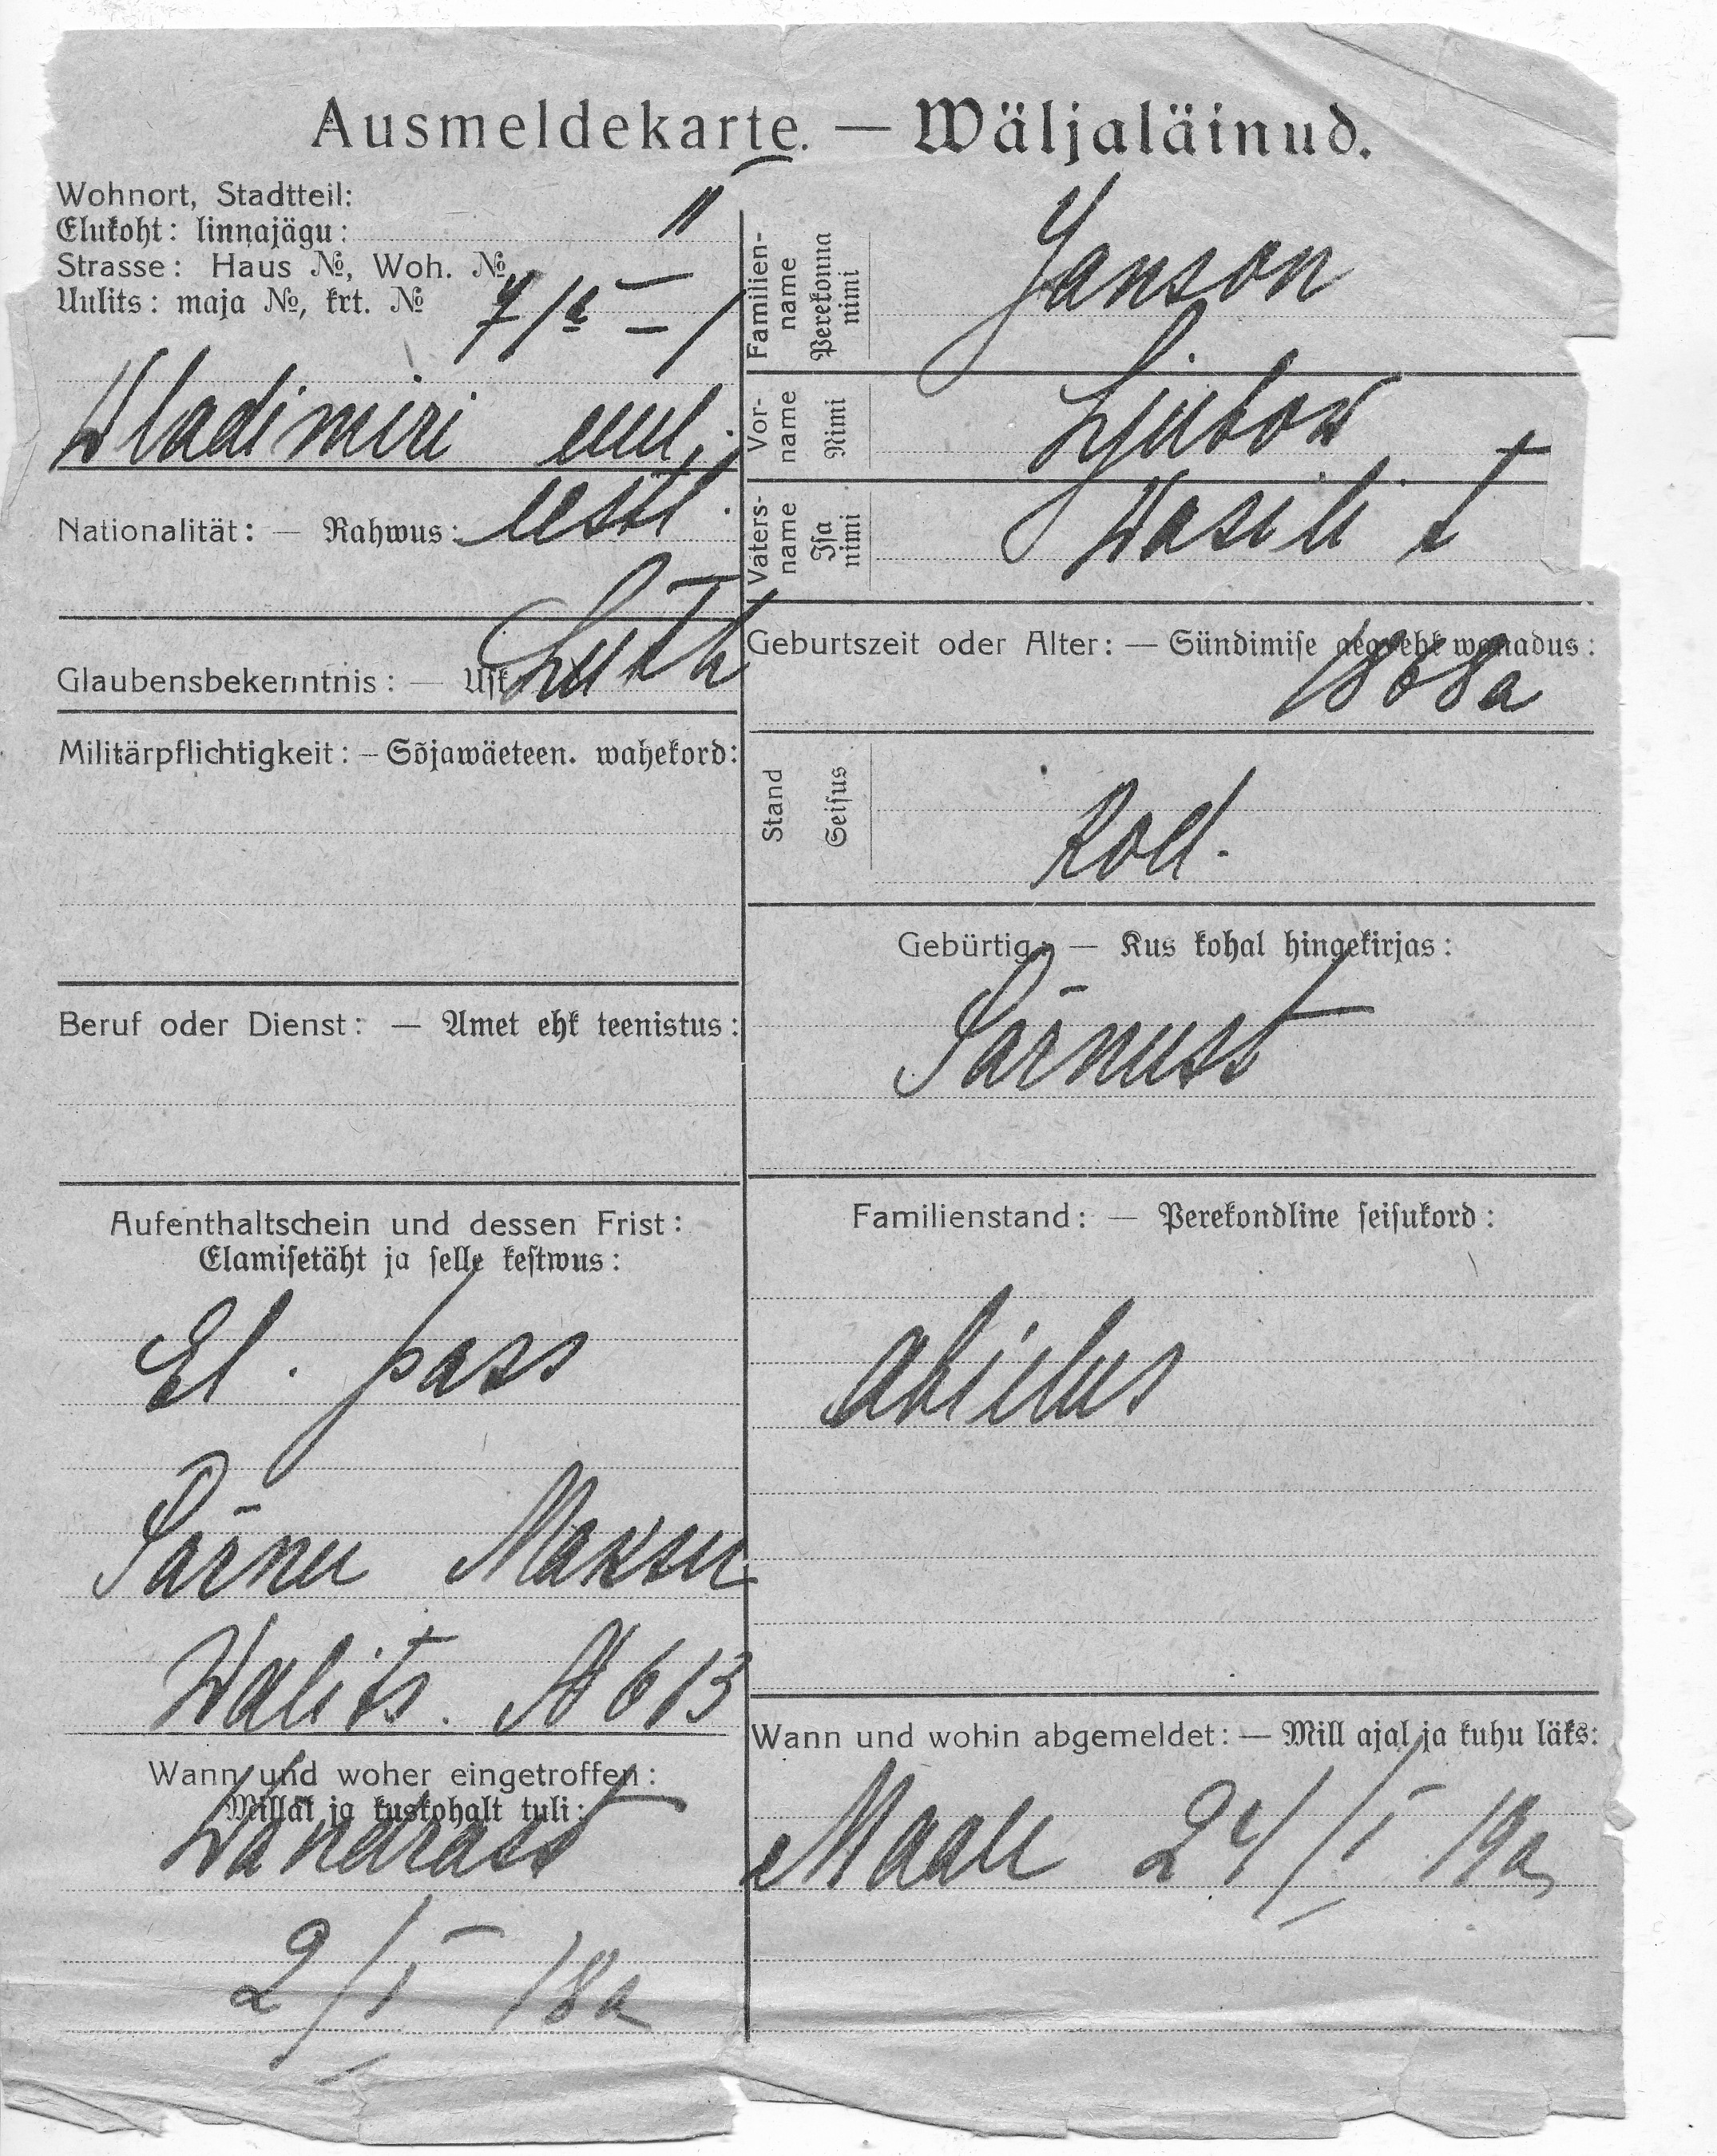 Ausmeldekarte. — Wäljaläinud.
Wohnort, Stadtteil:
Elukoht: linnajägu: II
Strasse: Haus №, Woh. №
Uulits: maja №, krt. №
Wladimiri uul.
Nationalität: — Rahwus: eestl.
Glaubensbekenntnis: — Usk Luth
Militärpflichtigkeit: — Sõjawäeteen. wahekord:
Beruf oder Dienst: — Amet ehk teenistus:
Aufenthaltschein und dessen Frist:
Elamisetäht ja selle kestwus:
El. pass
Pärnu Maksu
Walits. № 613
Wann und woher eingetroffen:
Millal ja kuskohalt tuli:
Wändrast
2/I 18a
Familien-
name
Perekonna
nimi
Janson
Vor-
name
Nimi
Ljubow
Vaters-
name
Isa
nimi
Wasili t
Geburtszeit oder Alter: — Sündimise aeg ehk wanadus:
1868a
Stand
Seisus
Kod.
Gebürtig: — Kus kohal hingekirjas:
Pärnust
Familienstand: — Perekondline seisukord:
abielus
Wann und wohin abgemeldet: — Mill ajal ja kuhu läks:
Maale 24/I 19a